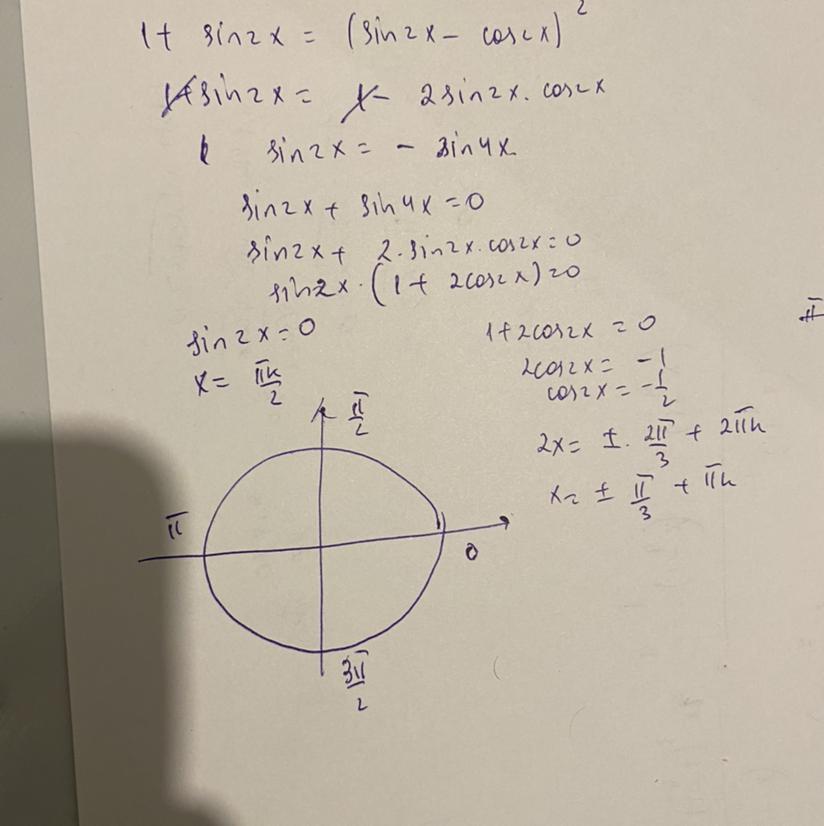 1+ sin2x = (sin2x - cos2x)²
1+sin2x = 1- 2sin2x·cos2x
sin2x = - sin4x
sin2x + sin4x = 0
sin2x + 2·sin2x·cos2x=0
sin2x·(1+ 2cos2x)=0
sin2x=0
x= πk/2
1+2cos2x = 0
2cos2x= -1
cos2x= -1/2
2x= ±· 2π/3 + 2πk
x= ± π/3 + πk
π/2
π
0
3π/2
π